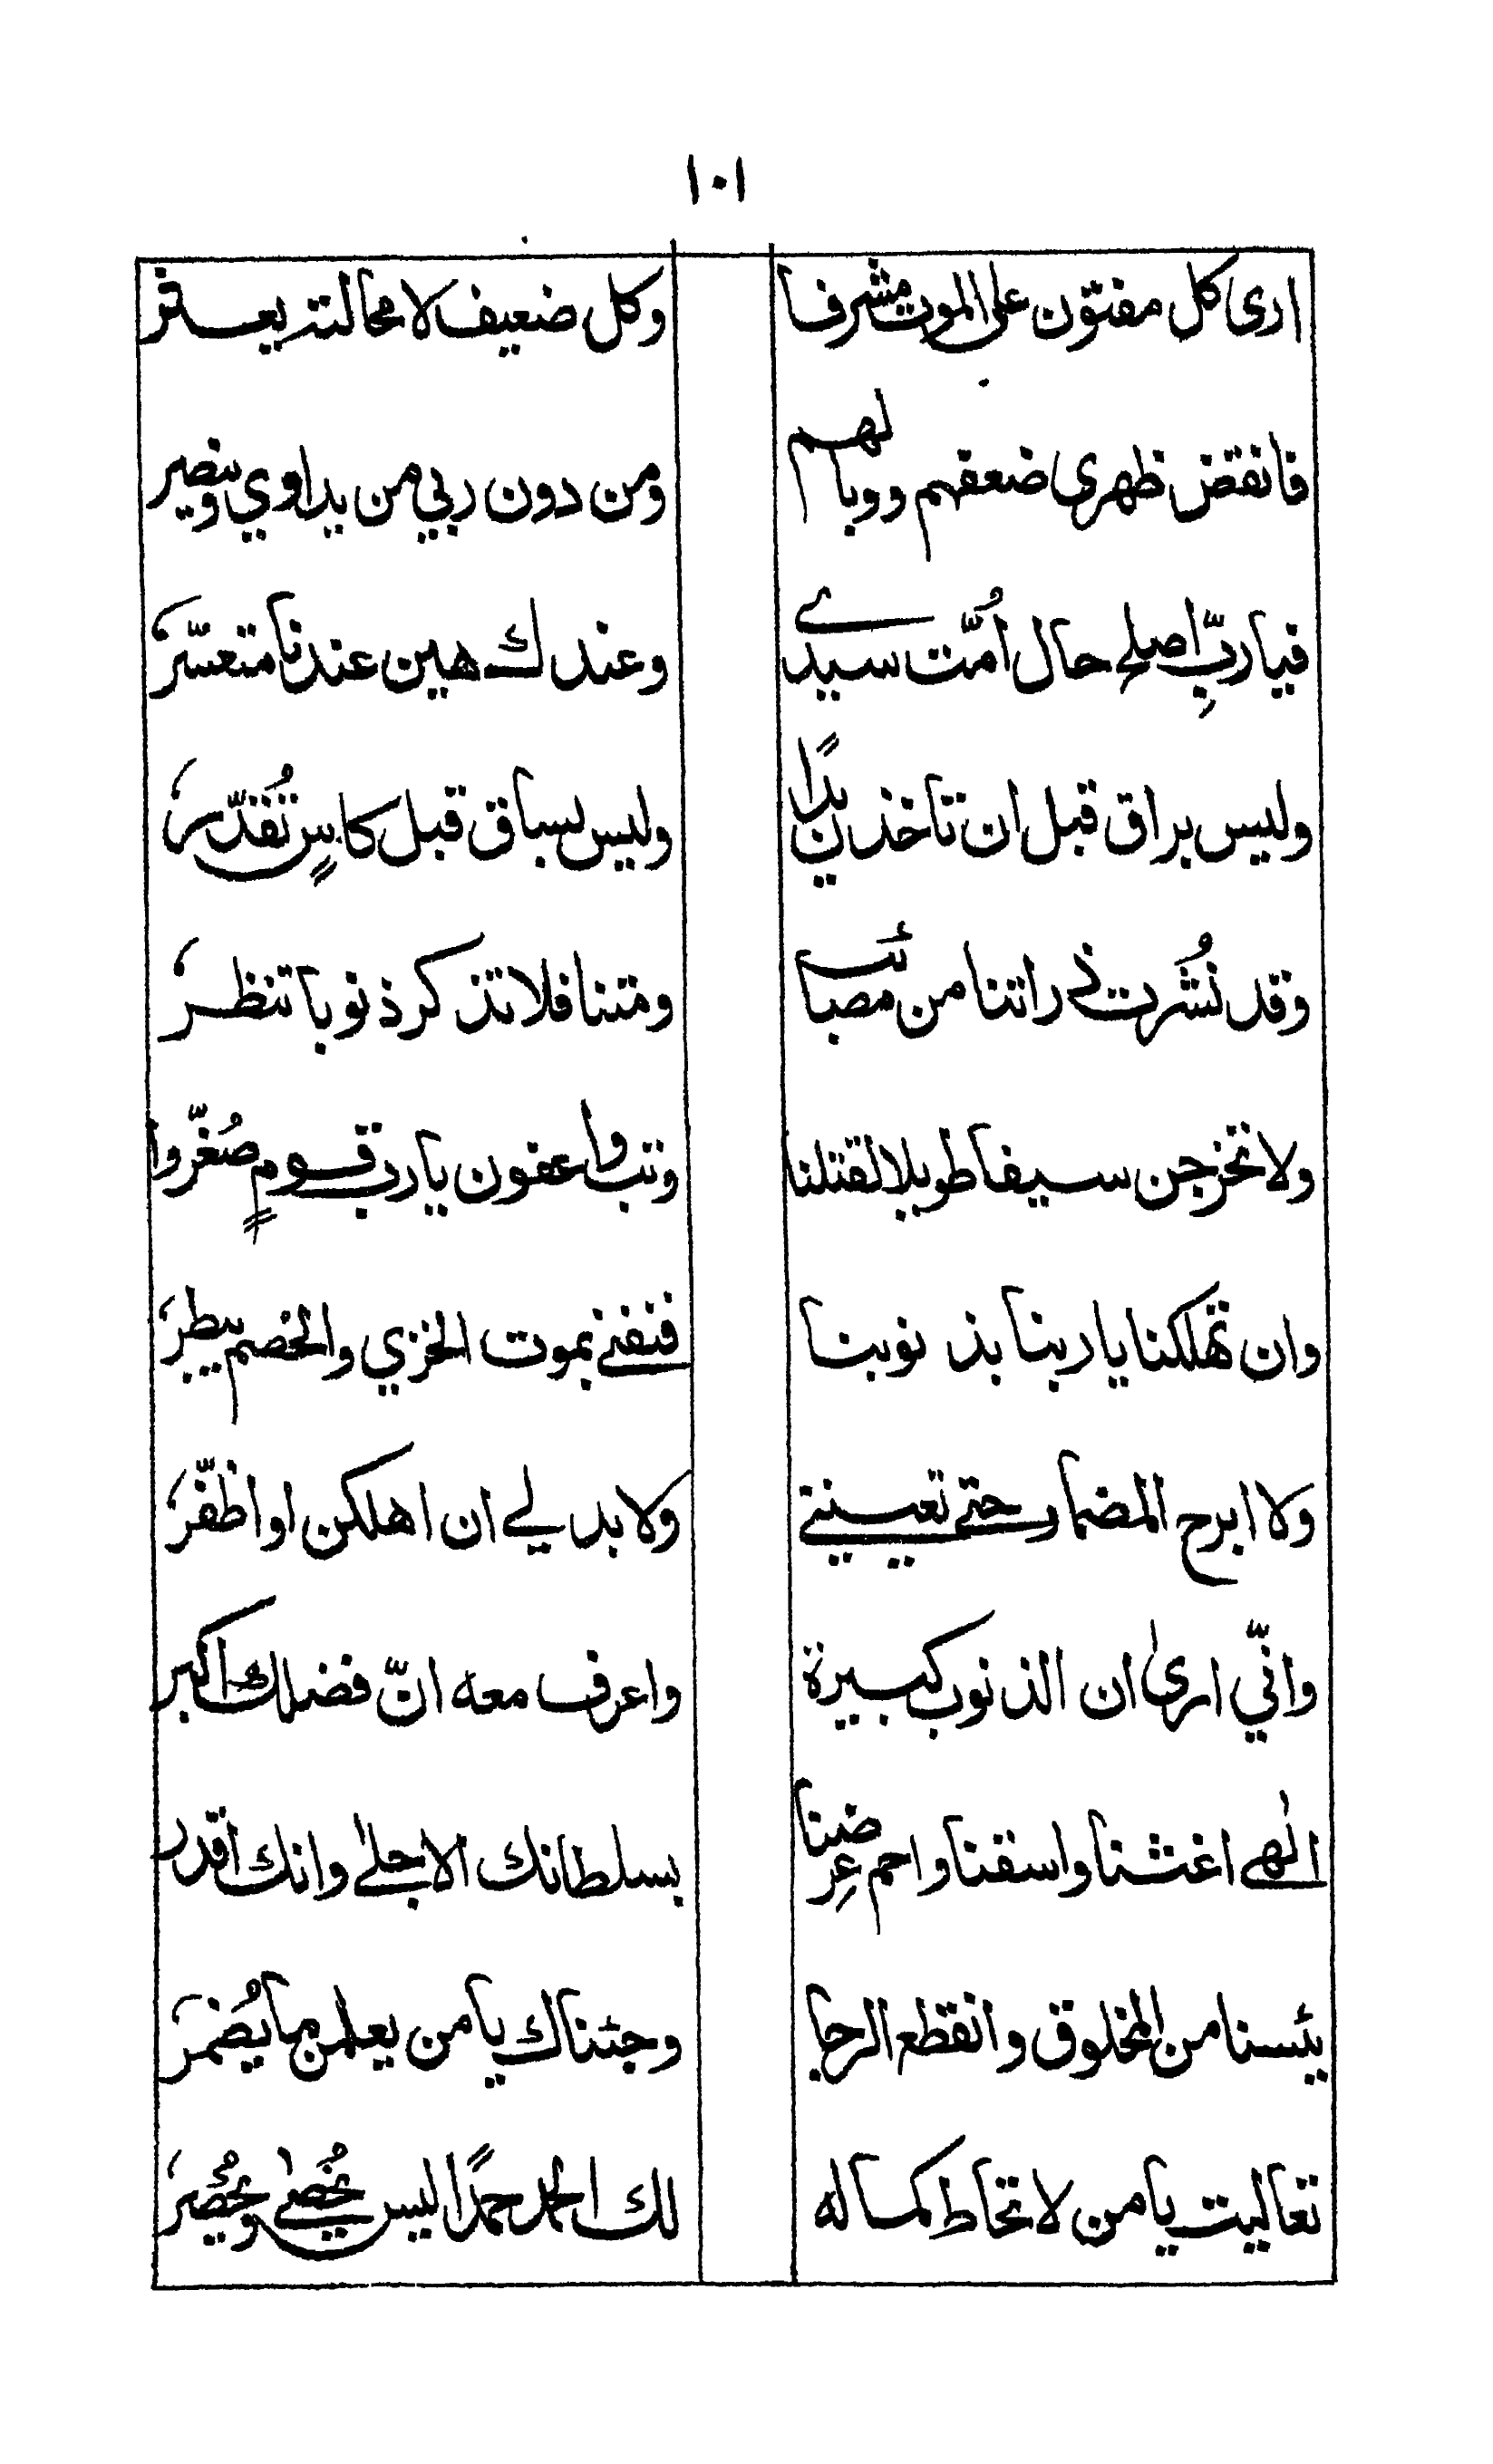 ١٠١
ارى كل مفتون على الموت مشرفا
وكل ضعيف لا محالته يعثر
فانقض ظهرى ضعفهم ووبالهم
ومن دون ربي من يداوي وينصر
فيا ربِّ اصلح حال اُمّت سيدي
وعندك هين عندنا متعسّر
وليس براق قبل ان تاخذن يدًا
وليس بساق قبل كاسٍ تُقدّر
وقد نُشرت ذراتنا من مصائب
ومتنا فلا تذكر ذنوبا تنظر
ولا تخرجن سيفا طويلا لقتلنا
وتب واعفون يا رب قومٍ صُغّروا
وان تهلكنا يا ربنا بذنوبنا
فنفنى بموت الخزي والخصم يبطر
ولا ابرح المضمار حتى تعينني
ولا بد لي ان اهلكن او اظفّر
وانّي ارىٰ ان الذنوب كبيرة
واعرف معه انّ فضلك اكبر
الٰهى اغثنا واسقنا واحم عِرضنا
بسلطانك الاجلىٰ وانك اقدر
يئسنا من المخلوق وانقطع الرجا
وجئناك يا من يعلمن ما يُضمر
تعاليت يا من لا تحاط كماله
لك الحمد حمدًا ليس يُحصىٰ ويُحصر